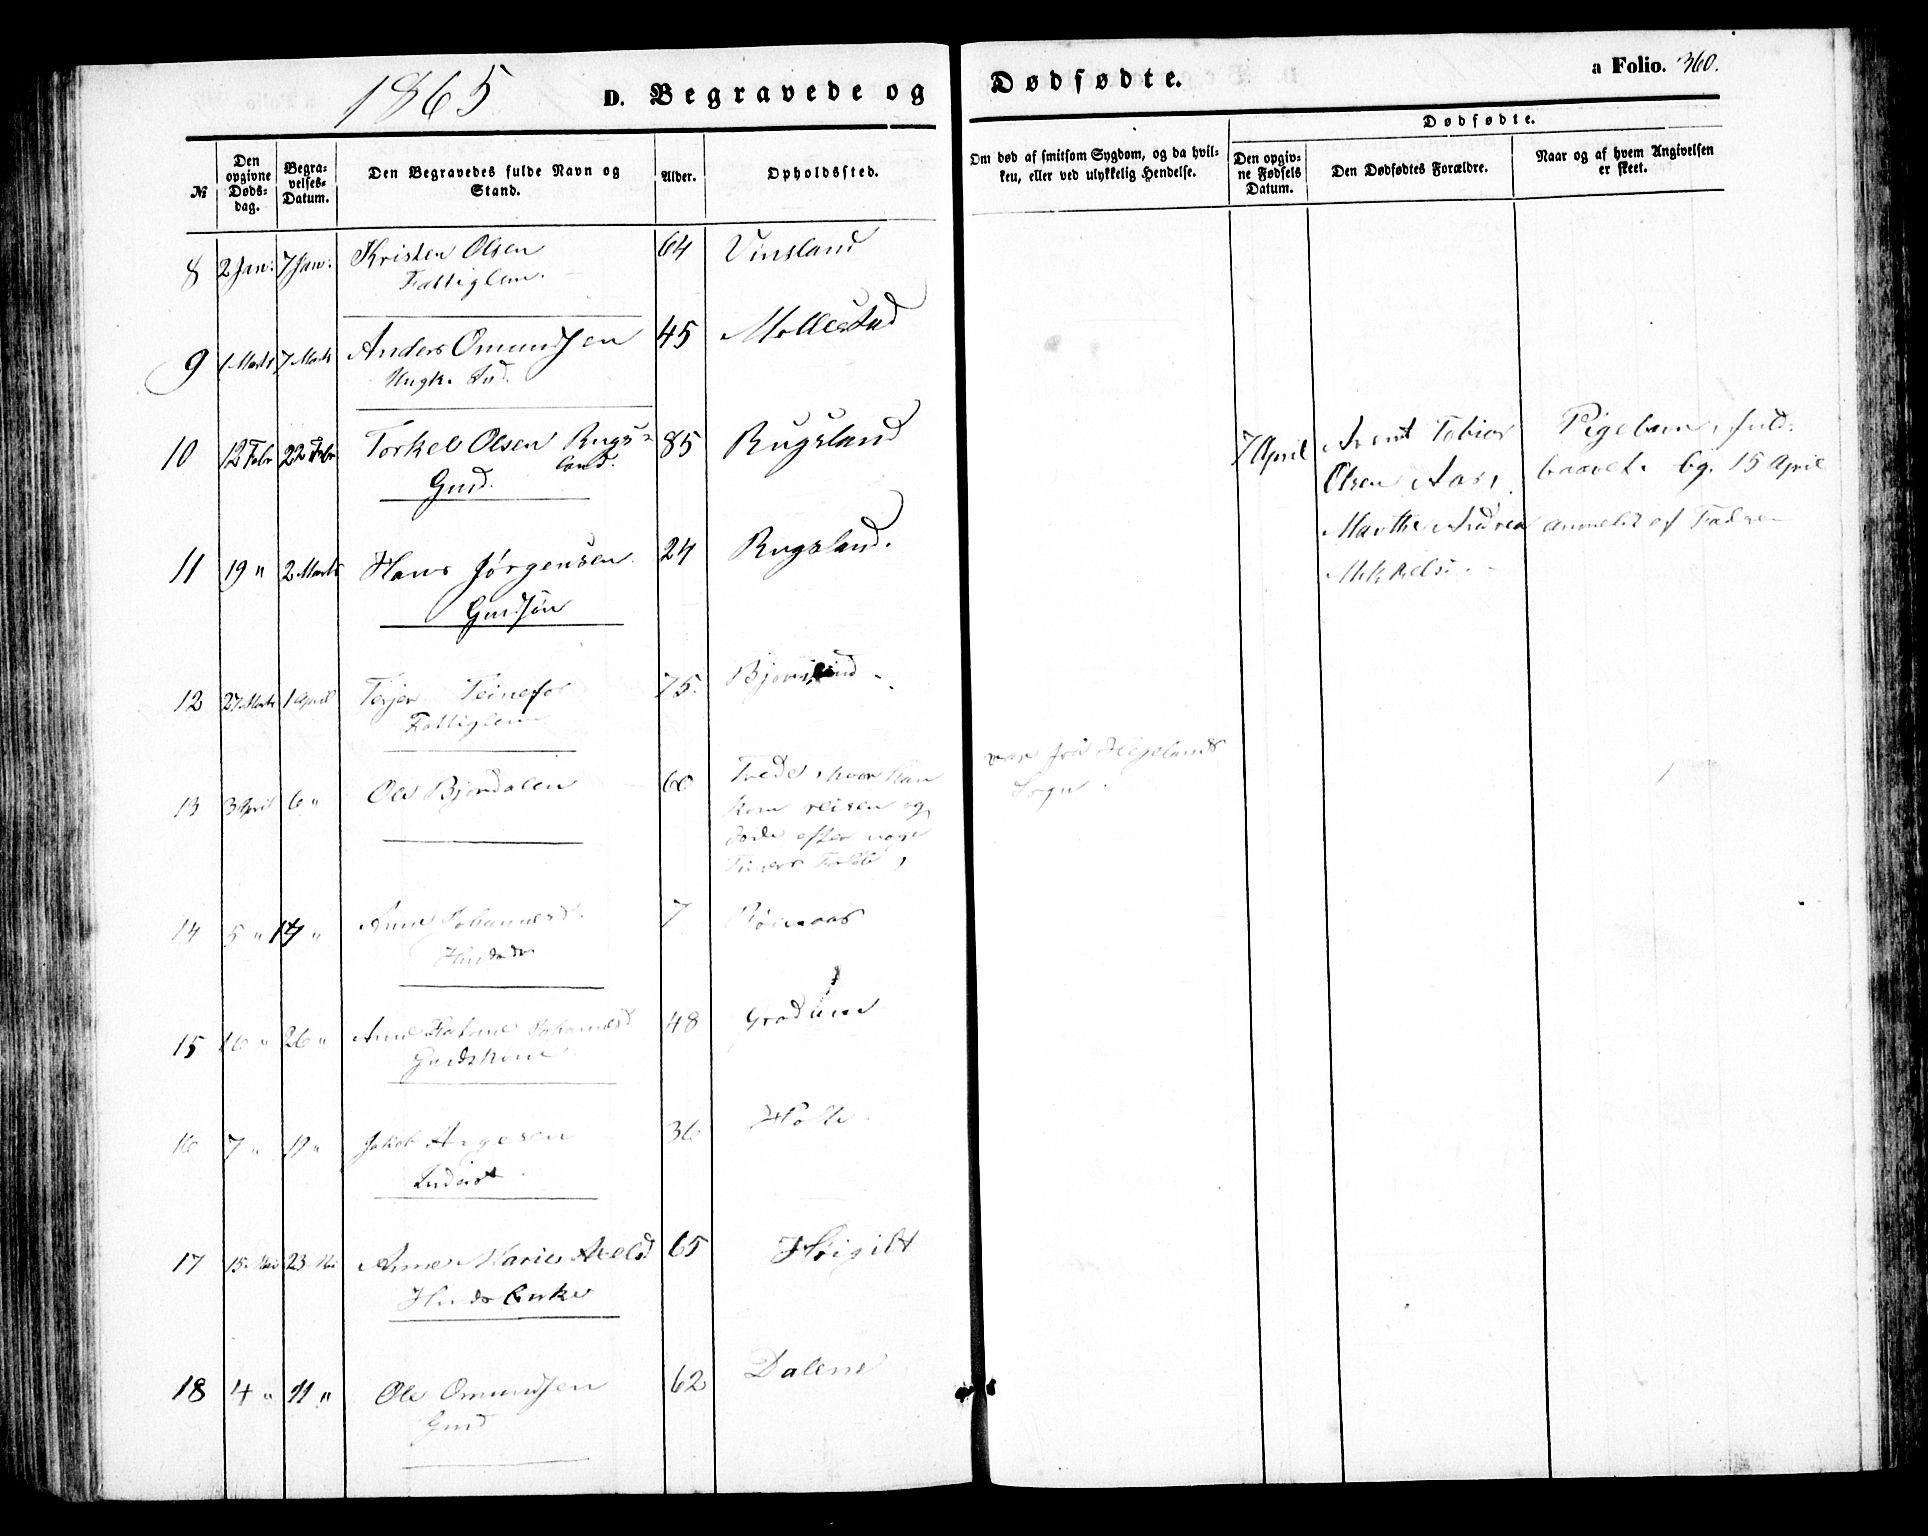 1865
D. Begravede og Dødfødte.
a Folio. 360.
Dødfødte.
№
Den opgivne Døds-dag.
Begra-velses-Datum.
Den Begravedes fulde Navn og Stand.
Alder.
Opholdssted.
Om død af smitsom Sygdom, og da hvil-
ken, eller ved ulykkelig Hendelse.
Den opgiv-
ne Fødsels
Datum.
Den Dødfødtes Forældre.
Naar og af hvem Angivelsen
er skeet.
8 2 Jan: 7 Jan: Kristen Olsen 64 Vinsland
Fattiglem.
9 1 Marts 7 Marts Anders Omundsen 45 Mollestad
Ungk. Ind.
10 12 Febr 22 Febr Torkel Olsen Rugs- 85 Rugsland
land.
Gmd.
7 April Arent Tobias Pigebarn, fuld-
Olsen Aas, baaret. bg. 15 April
Marthe Andrea anmeldt af Faderen
Mikkelsd.
11 19 " 2 Marts Hans Jørgensen 24 Rugsland.
Gmdsøn
12 27 Marts 1 April Terjer 75. Bjorvand
Fattiglem
13 3 April 6 " Ole Bjordalen 60 Trede, hvor han
kom reisen og
døde efter nogle
Timers Forløb,
var fra Hegelands
Sogn.
14 5 " 14 " Anne Johannesd. 7
15 16 " 26 " Anne Johannesd 48
Gmdskone
16 7 " 11 " Jakob Aagesen 36 Holte
Inderst
17 15 Mai 23 Mai Anne Marie Axelsd 65 Høigilt
Husmdsenke
18 4 " 11 " Ole Omundsen 62 Dalene
Gmd